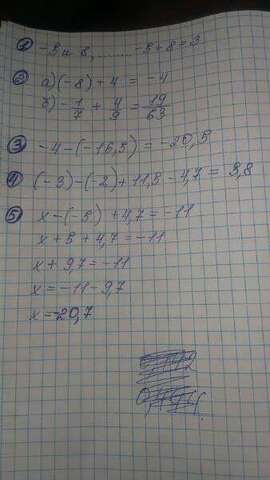 ① -5 и 8, ........ -5+8=3
② а) (-8) + 4 = -4
б) -1/7 + 4/9 = 19/63
③ -4-(-16,5) = -20,5
④ (-3)-(-2)+11,5-4,7 = 3,8
⑤ x-(-5)+4,7=-11
x+5+4,7=-11
x+9,7=-11
x=-11-9,7
x=-20,7